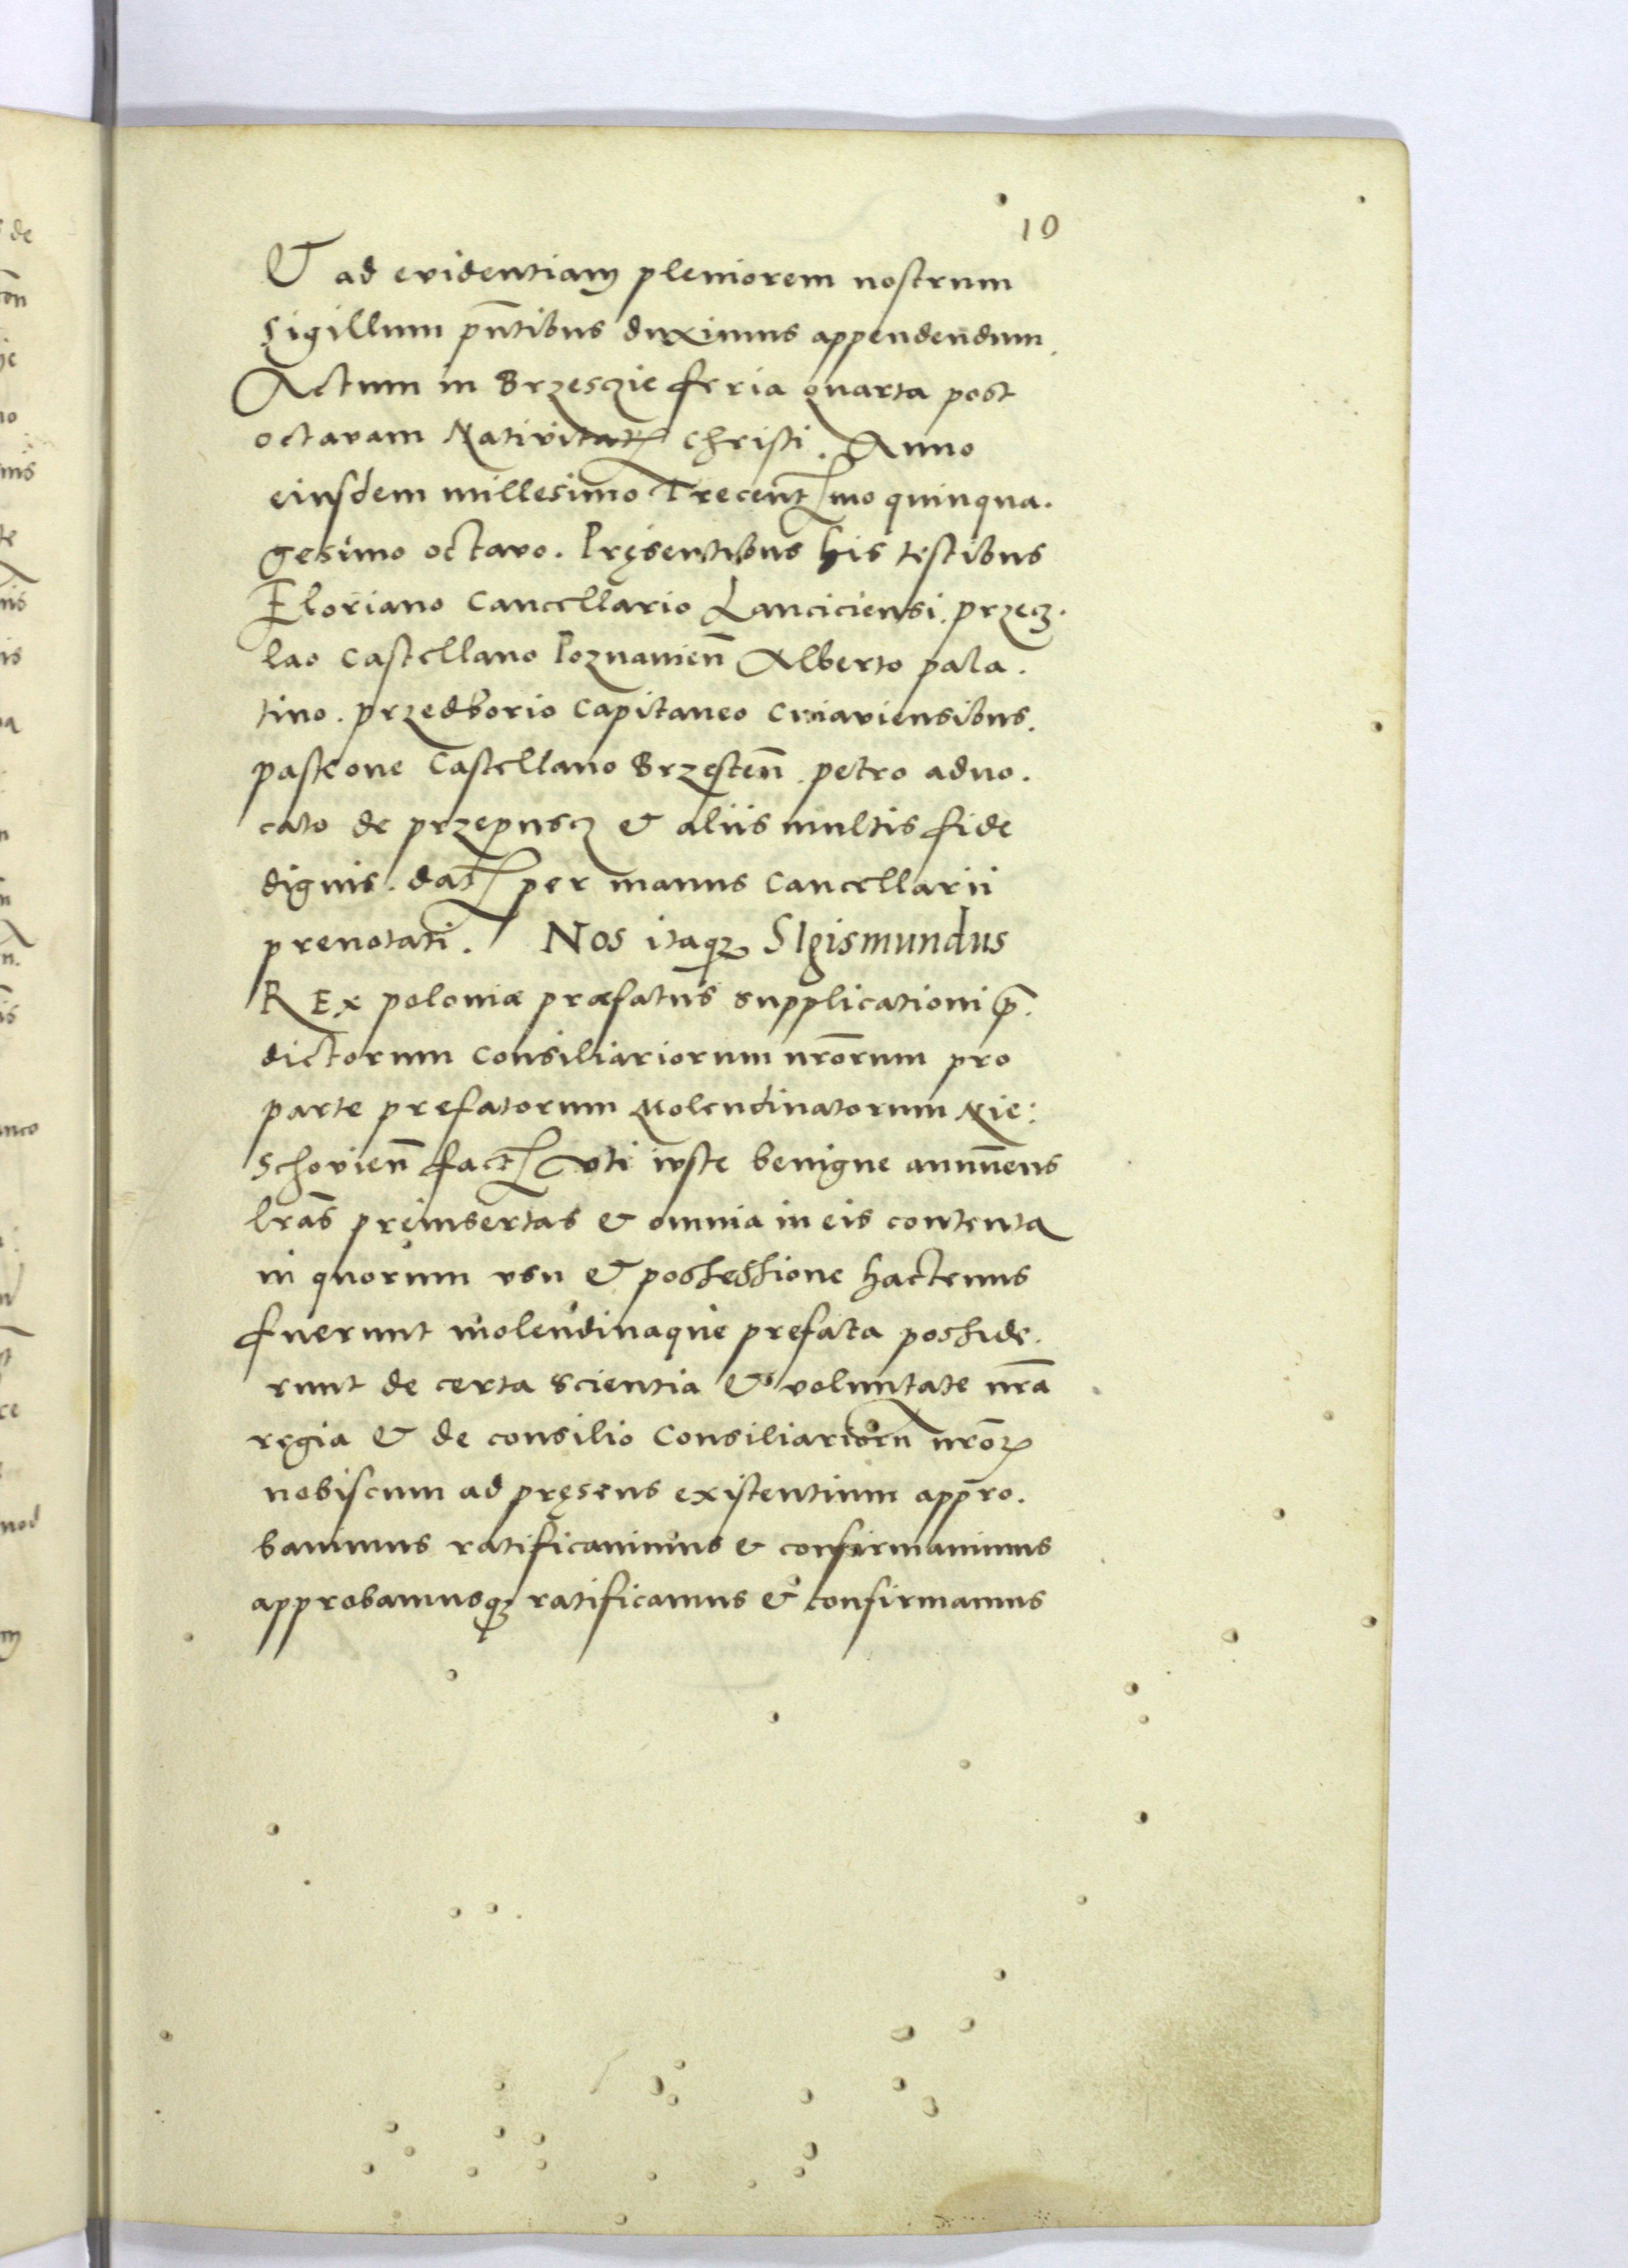 10
Et ad evidentiam pleniorem nostrum
Sigillum pñtibus duximus appendendum.
Actum in Brzesczie feria quarta post
octavam Nativitatꝭ Christi. Anno
eiusdem millesimo Trecentꝭmo quinqua.
gesimo octavo. Pręsentibus his testibus
Floriano Cancellario Lanciciensi. przecz.
lao Castellano Poznanieñ Alberto pala.
tino. przedborio Capitaneo Cuiaviensibus.
paskone Castellano Brzesteñ. petro aduo.
cato de przepuscz & aliis multis fide
dignis. datꝭ per manus Cancellarii
prenotati. Nos itaqꝫ SIgismundus
REx poloniæ præfatus supplicationi p̃.
dictorum Consiliariorum nr̃orum pro
parte prefatorum Molendinatorum Nie:
schovieñ factꝭ vti iuste benigne annuens
lr̃as pręinsertas & omnia in eis contenta
in quorum vsu & possessione hactenus
fuerunt molendinaque prefata posside.
runt de certa scientia & voluntate nr̃a
regia & de consilio Consiliariorũ nr̃oꝝ
nobiscum ad pręsens existentium appro.
bauimus ratificauimus & confirmauimus
approbamusqꝫ ratificamus & confirmamus